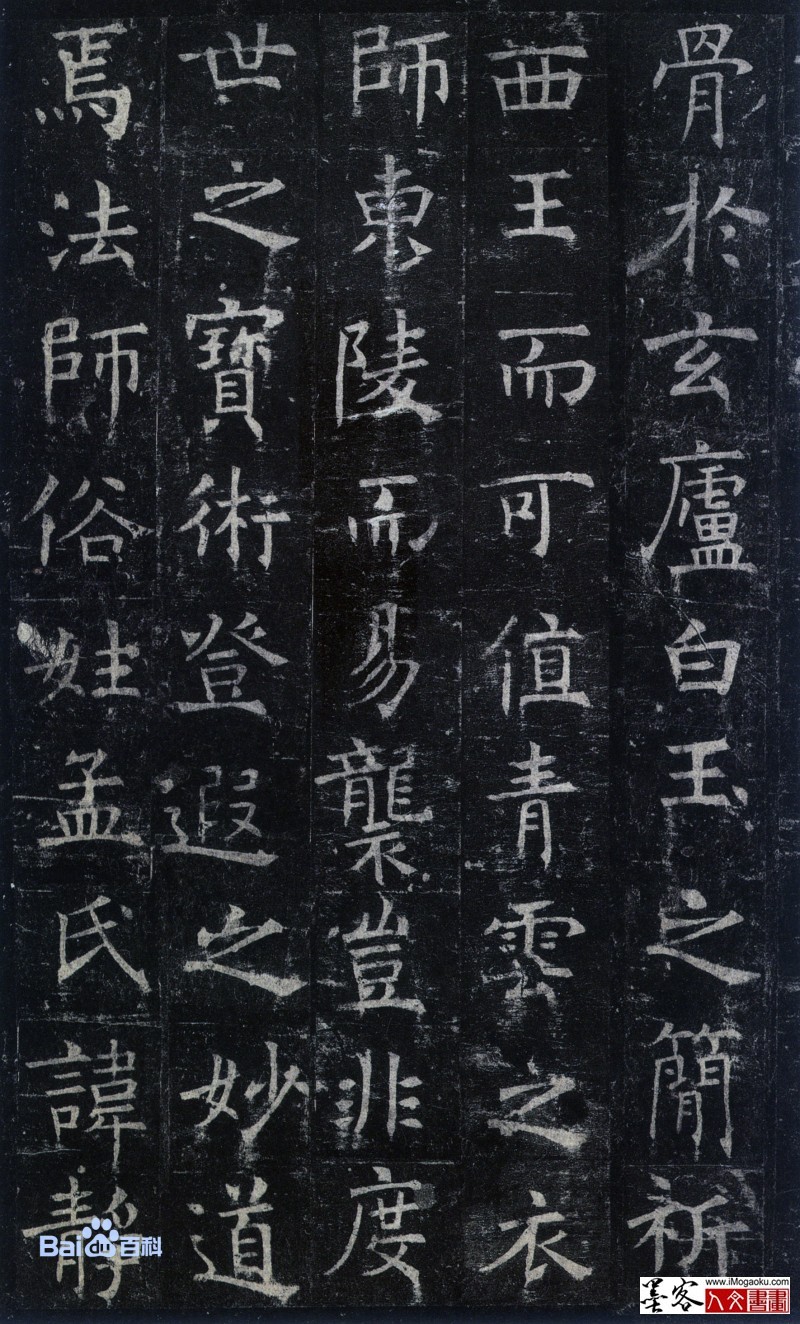 骨於玄廬白玉之簡祈
西王而可值青雲之衣
師東陵而易襲豈非度
世之寶術登遐之妙道
焉法師俗姓孟氏諱靜
Bai du 百科
www.iMogaoku.com
墨客人文書畫